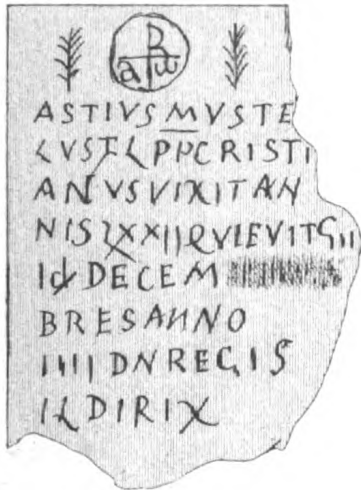 R
a ω
ASTIVS MVSTE
LVS FL PP CRISTI
ANVS VIXIT AN
NIS LXXII QVIEVIT ϚII
ID DECEM
BRES ANNO
IIII DN REGIS
ILDIRIX